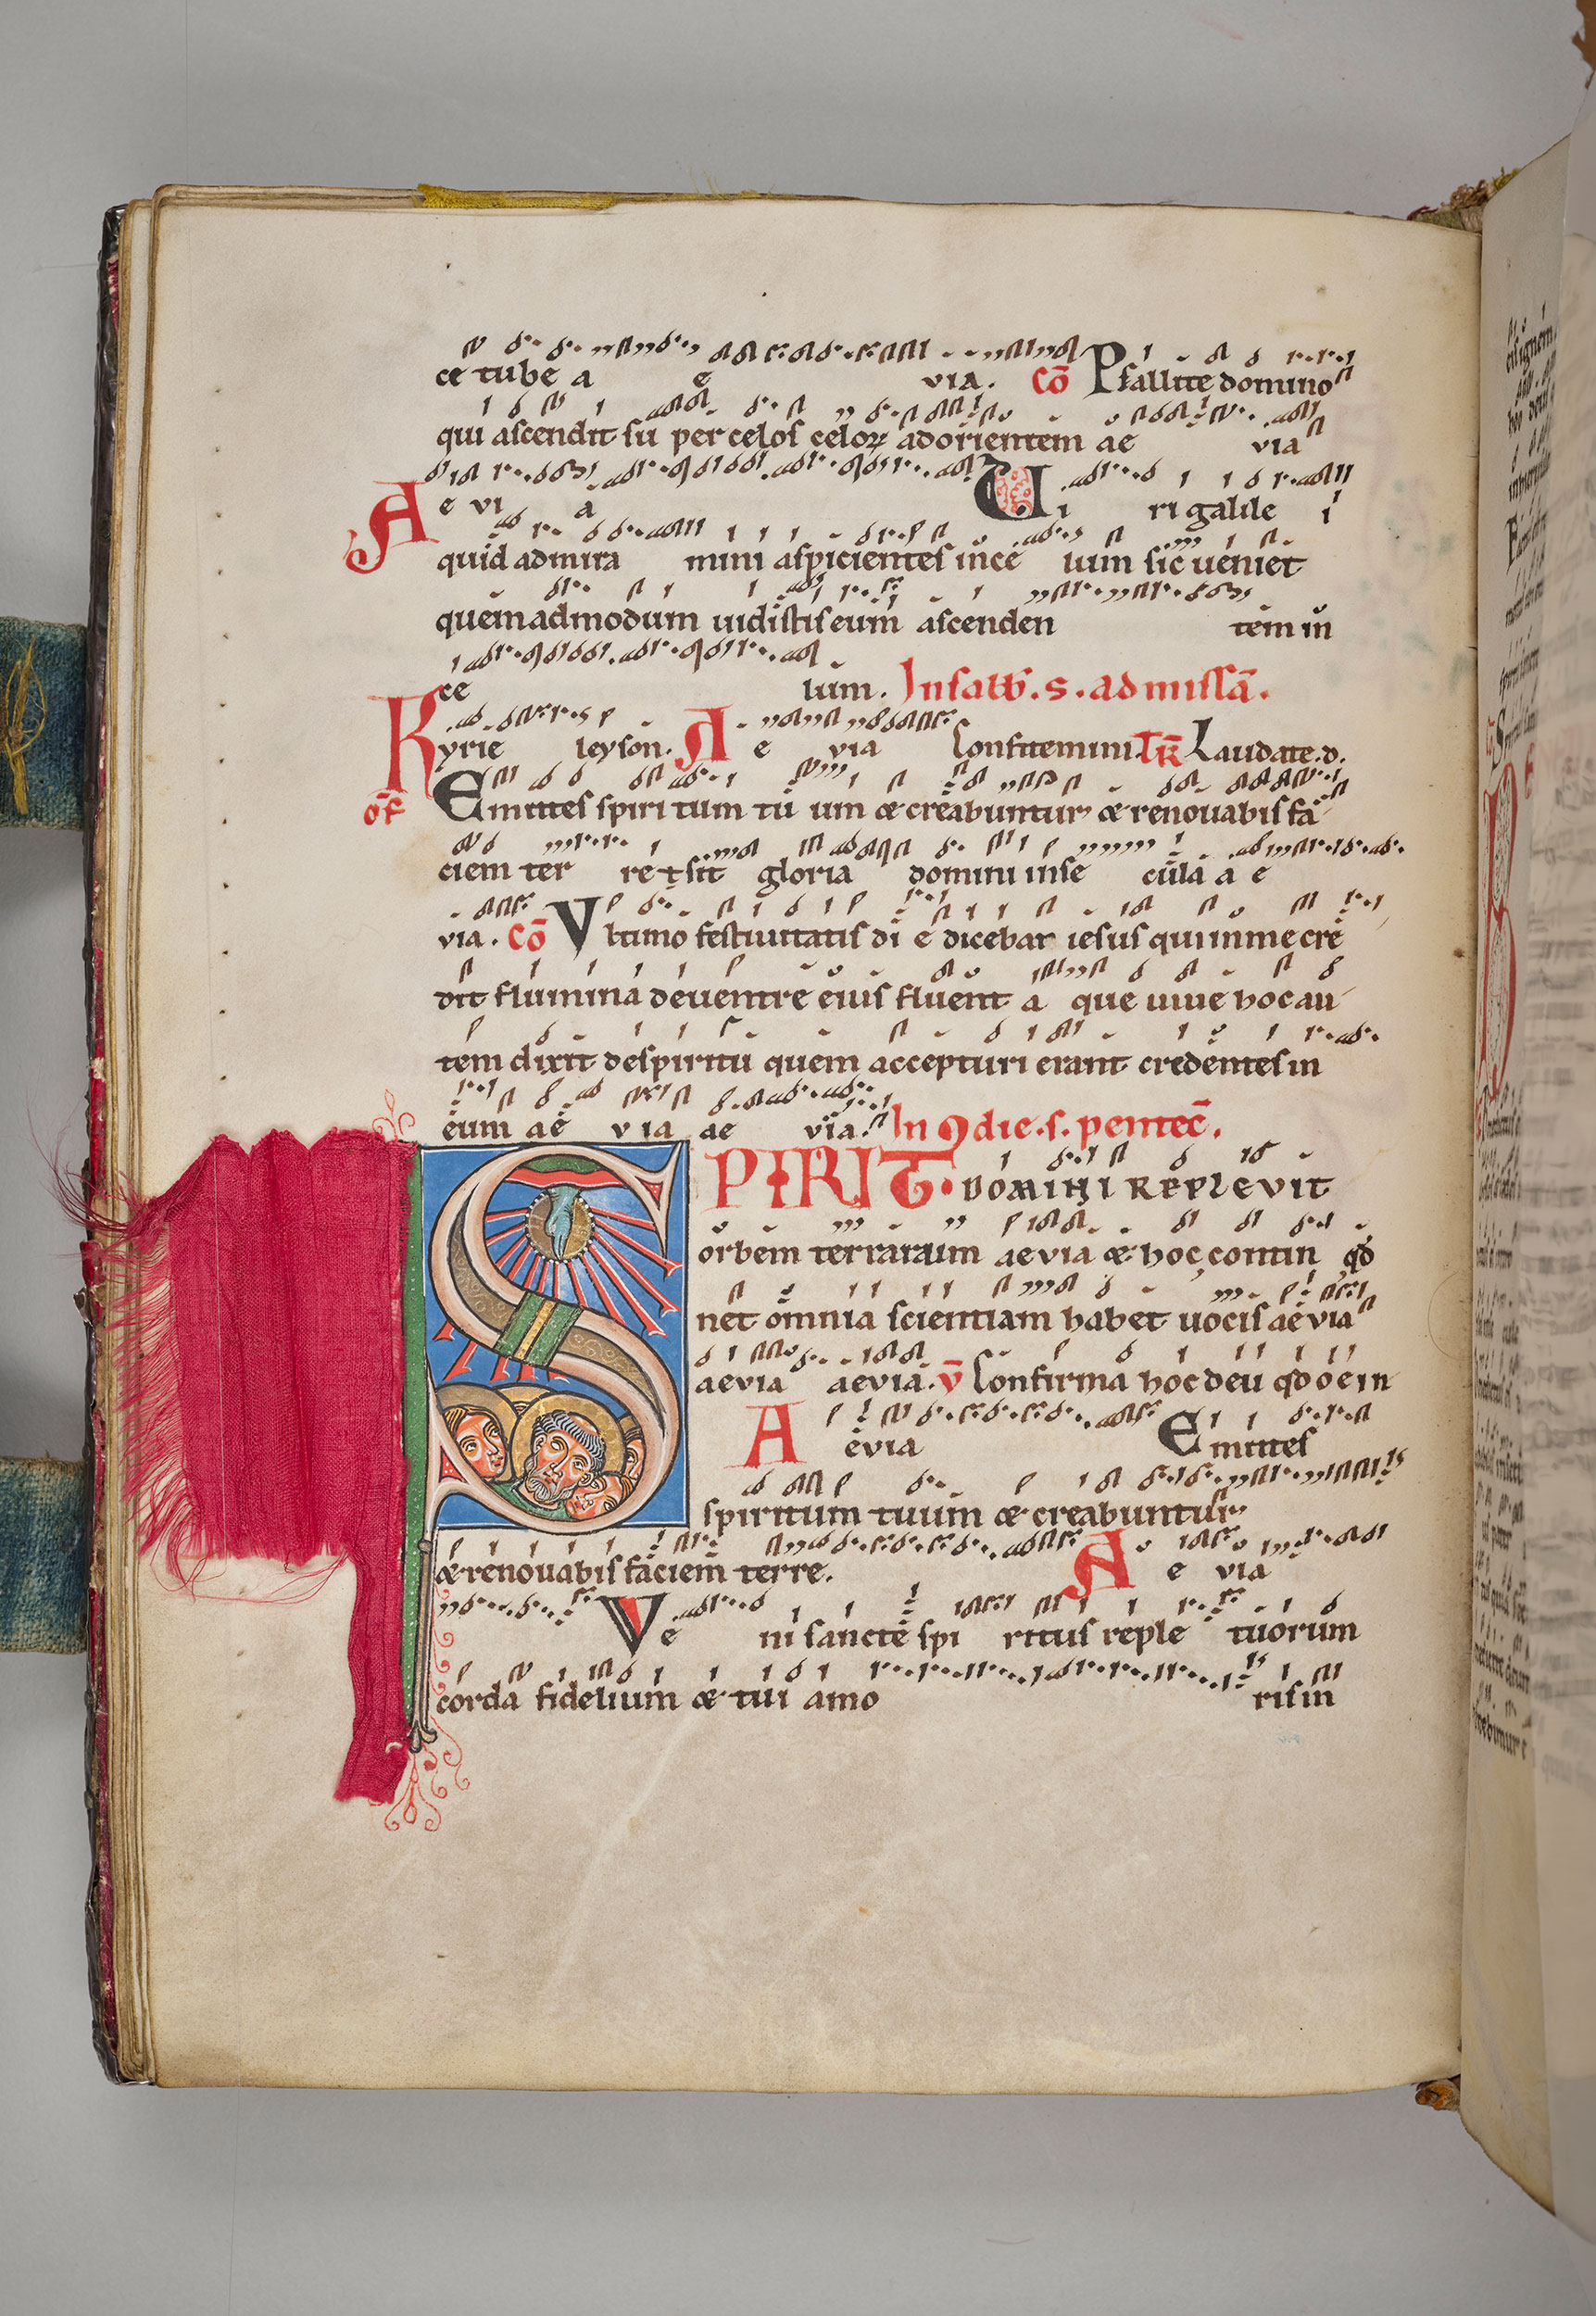 ce tube a e via. Cō Psallite domino
qui ascendit su per celos celoꝝ ad orientem ae via
A e vi a Viri galile i
quid admira mini aspicientes in ce lum sic ueniet
quemadmodum uidistis eum ascenden tem in
ce lum. In sabb. s. ad missā.
Kyrie leyson. A e via Confitemini. TR̄ Laudate. d.
of Emittes spiri tum tu um æ creabuntur æ renouabis fa
ciem ter re + sit gloria domini in se cula a e
via. Cō Vltimo festiuitatis di e dicebat iesus qui in me cre
dit flumina de uentre eius fluent a que uiue hoc au
tem dixit de spiritu quem accepturi erant credentes in
eum ae via ae via. In die. s. pentec̄.
SPIRIT. DOMINI REPLEVIT
orbem terrararum aevia æ hoc contin qđ
net omnia scientiam habet uocis aevia
aevia aevia. v̄ Confirma hoc deu qđ o e in
A evia Emittes
spiritum tuum æ creabuntur
æ renouabis faciem terre. A e via
Ve ni sancte spi ritus reple tuorum
corda fidelium æ tui amo ris in